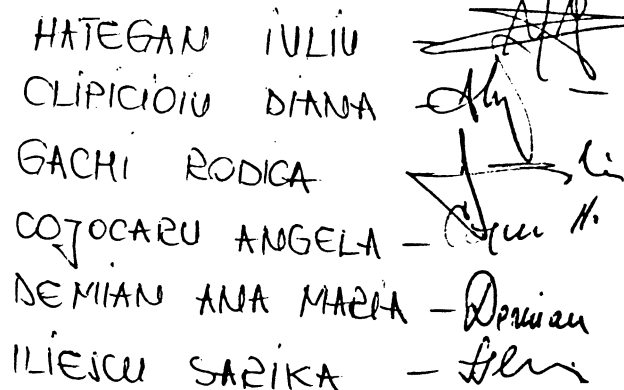 HATEGAN IULIU
CLIPICIOIU DIANA -
GACHI RODICA
COJOCARU ANGELA -
DEMIAN ANA MARIA - Demian
ILIESCU SARIKA -